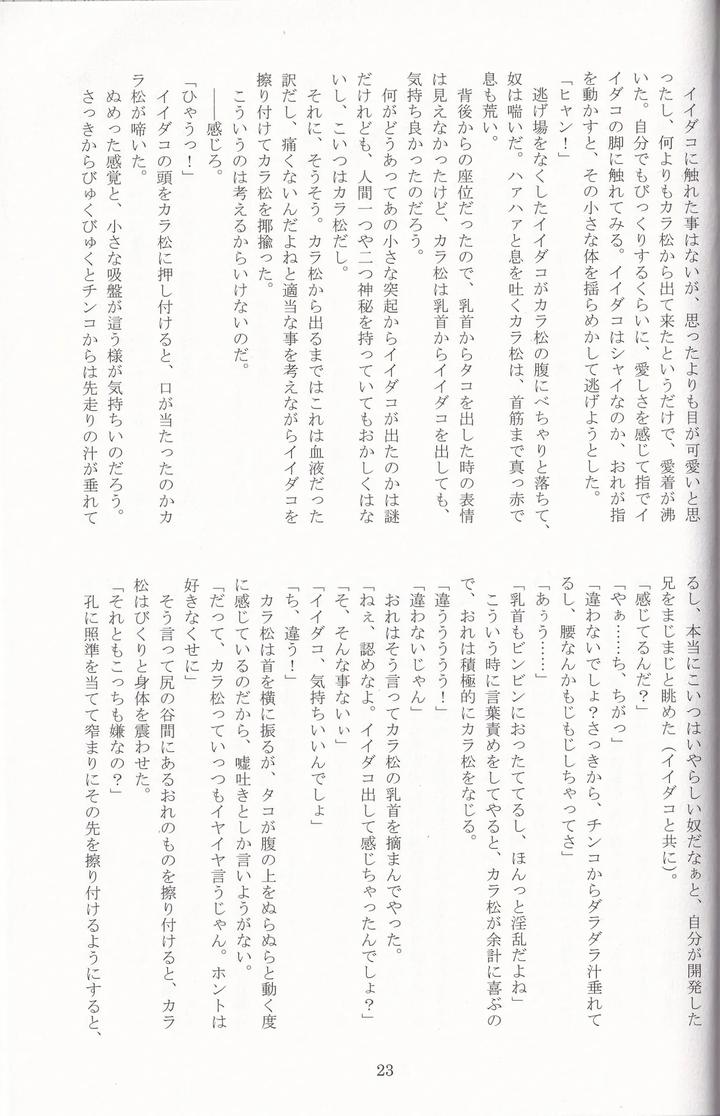 イイダコに触れた事はないが、思ったよりも目が可愛いと思
ったし、何よりもカラ松から出て来たというだけで、愛着が沸
いた。自分でもびっくりするくらいに、愛しさを感じて指でイ
イダコの脚に触れてみる。イイダコはシャイなのか、おれが指
を動かすと、その小さな体を揺らめかして逃げようとした。
「ヒャン！」
　逃げ場をなくしたイイダコがカラ松の腹にべちゃりと落ちて、
奴は喘いだ。ハァハァと息を吐くカラ松は、首筋まで真っ赤で
息も荒い。
　背後からの座位だったので、乳首からタコを出した時の表情
は見えなかったけど、カラ松は乳首からイイダコを出しても、
気持ち良かったのだろう。
　何がどうあってあの小さな突起からイイダコが出たのかは謎
だけれども、人間一つや二つ神秘を持っていてもおかしくはな
いし、こいつはカラ松だし。
　それに、そうそう。カラ松から出るまではこれは血液だった
訳だし、痛くないんだよねと適当な事を考えながらイイダコを
擦り付けてカラ松を揶揄った。
　こういうのは考えるからいけないのだ。
　――感じろ。
「ひゃうっ！」
　イイダコの頭をカラ松に押し付けると、口が当たったのかカ
ラ松が啼いた。
　ぬめった感覚と、小さな吸盤が這う様が気持ちいのだろう。
さっきからびゅくびゅくとチンコからは先走りの汁が垂れて
るし、本当にこいつはいやらしい奴だなぁと、自分が開発した
兄をまじまじと眺めた（イイダコと共に）。
「感じてるんだ？」
「やぁ……ち、ちがっ」
「違わないでしょ？さっきから、チンコからダラダラ汁垂れて
るし、腰なんかもじもじしちゃってさ」
「あぅう……」
「乳首もビンビンにおったててるし、ほんっと淫乱だよね」
　こういう時に言葉責めをしてやると、カラ松が余計に喜ぶの
で、おれは積極的にカラ松をなじる。
「違うぅぅぅう！」
「違わないじゃん」
　おれはそう言ってカラ松の乳首を摘まんでやった。
「ねぇ、認めなよ。イイダコ出して感じちゃったんでしょ？」
「そ、そんな事ないぃ」
「イイダコ、気持ちいいんでしょ」
「ち、違う！」
　カラ松は首を横に振るが、タコが腹の上をぬらぬらと動く度
に感じているのだから、嘘吐きとしか言いようがない。
「だって、カラ松っていっつもイヤイヤ言うじゃん。ホントは
好きなくせに」
　そう言って尻の谷間にあるおれのものを擦り付けると、カラ
松はびくりと身体を震わせた。
「それともこっちも嫌なの？」
　孔に照準を当てて窄まりにその先を擦り付けるようにすると、
23